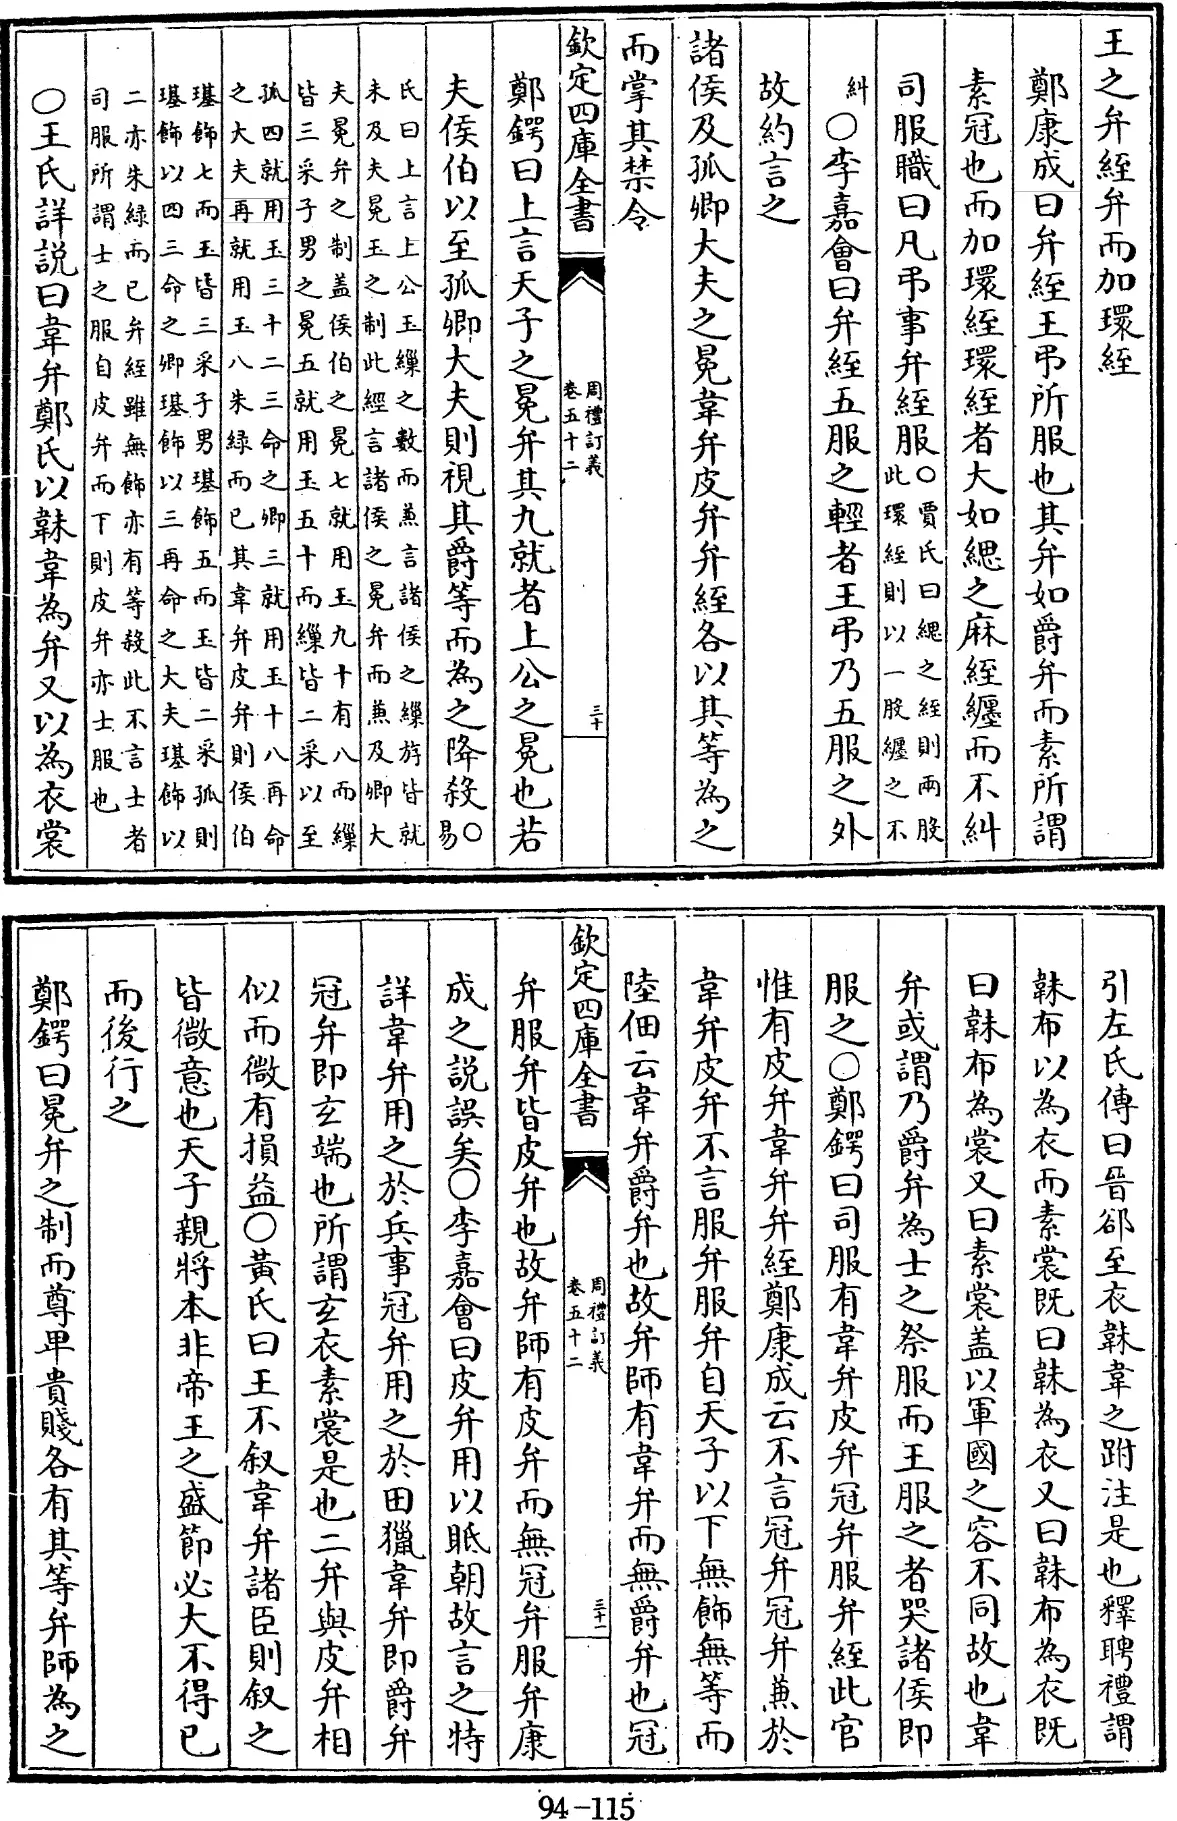 王之弁絰弁而加環絰
鄭康成曰弁絰王弔所服也其弁如爵弁而素所謂
素冠也而加環絰環絰者大如緦之麻絰纒而不糾
司服職曰凡弔事弁絰服○賈氏曰緦之絰則兩股
此環絰則以一股纒之不
糾○李嘉會曰弁絰五服之輕者王弔乃五服之外
故約言之
諸侯及孤卿大夫之冕韋弁皮弁弁絰各以其等為之
而掌其禁令
欽定四庫全書
周禮訂義
卷五十二
三十
鄭鍔曰上言天子之冕弁其九就者上公之冕也若
夫侯伯以至孤卿大夫則視其爵等而為之降殺○
易
氏曰上言上公玉繅之數而兼言諸侯之繅斿皆就
未及夫冕玉之制此經言諸侯之冕弁而兼及卿大
夫冕弁之制盖侯伯之冕七就用玉九十有八而繅
皆三采子男之冕五就用玉五十而繅皆二采以至
孤四就用玉三十二三命之卿三就用玉十八再命
之大夫再就用玉八朱緑而已其韋弁皮弁則侯伯
璂飾七而玉皆三采子男璂飾五而玉皆二采孤則
璂飾以四三命之卿璂飾以三再命之大夫璂飾以
二亦朱緑而已弁絰雖無飾亦有等殺此不言士者
司服所謂士之服自皮弁而下則皮弁亦士服也
○王氏詳説曰韋弁鄭氏以韎韋為弁又以為衣裳
引左氏傳曰晉郤至衣韎韋之跗注是也釋聘禮謂
韎布以為衣而素裳既曰韎為衣又曰韎布為衣既
曰韎布為裳又曰素裳盖以軍國之容不同故也韋
弁或謂乃爵弁為士之祭服而王服之者哭諸侯即
服之○鄭鍔曰司服有韋弁皮弁冠弁服弁絰此官
惟有皮弁韋弁弁絰鄭康成云不言冠弁冠弁兼於
韋弁皮弁不言服弁服弁自天子以下無飾無等而
陸佃云韋弁爵弁也故弁師有韋弁而無爵弁也冠
欽定四庫全書
周禮訂義
卷五十二
三十一
弁服弁皆皮弁也故弁師有皮弁而無冠弁服弁康
成之説誤矣○李嘉會曰皮弁用以眡朝故言之特
詳韋弁用之於兵事冠弁用之於田獵韋弁即爵弁
冠弁即玄端也所謂玄衣素裳是也二弁與皮弁相
似而微有損益○黃氏曰王不叙韋弁諸臣則叙之
皆微意也天子親將本非帝王之盛節必大不得已
而後行之
鄭鍔曰冕弁之制而尊卑貴賤各有其等弁師為之
94-115